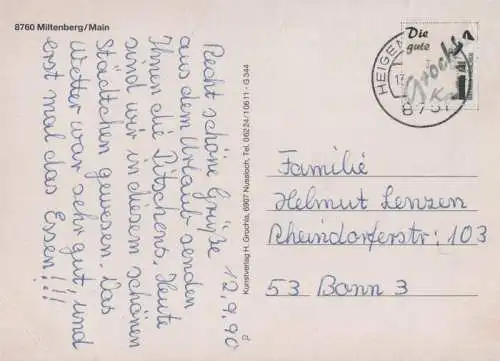 8760 Miltenberg/Main
12.9.90
Recht schöne Grüße
aus dem Urlaub senden
Ihnen die Pitschens. Heute
sind wir in diesem schönen
Städtchen gewesen. Das
Wetter war sehr gut, und
erst mal das Essen!!!
Kunstverlag H. Grochla, 6907 Nussloch, Tel. 06224/10611 - G 344
Die
gute
HEIGEN
8751
Familie
Helmut Lenzen
Rheindorferstr: 103
53 Bonn 3